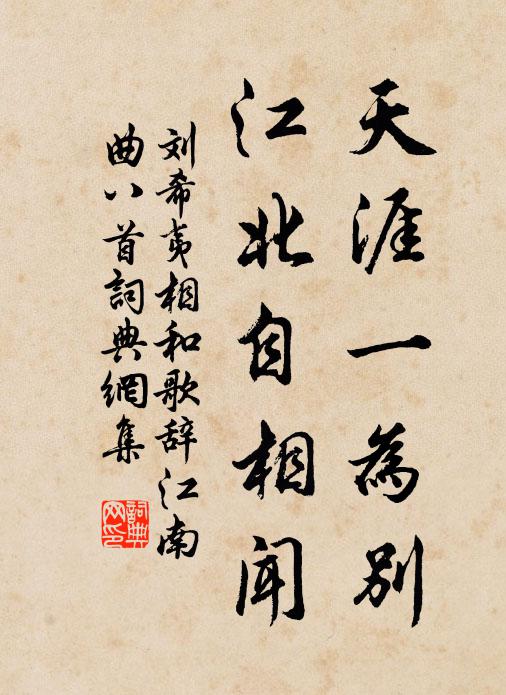 天涯一為别
江北自相闻
刘希夷相和歌辞江南
曲八首詞典網集
詞典网印